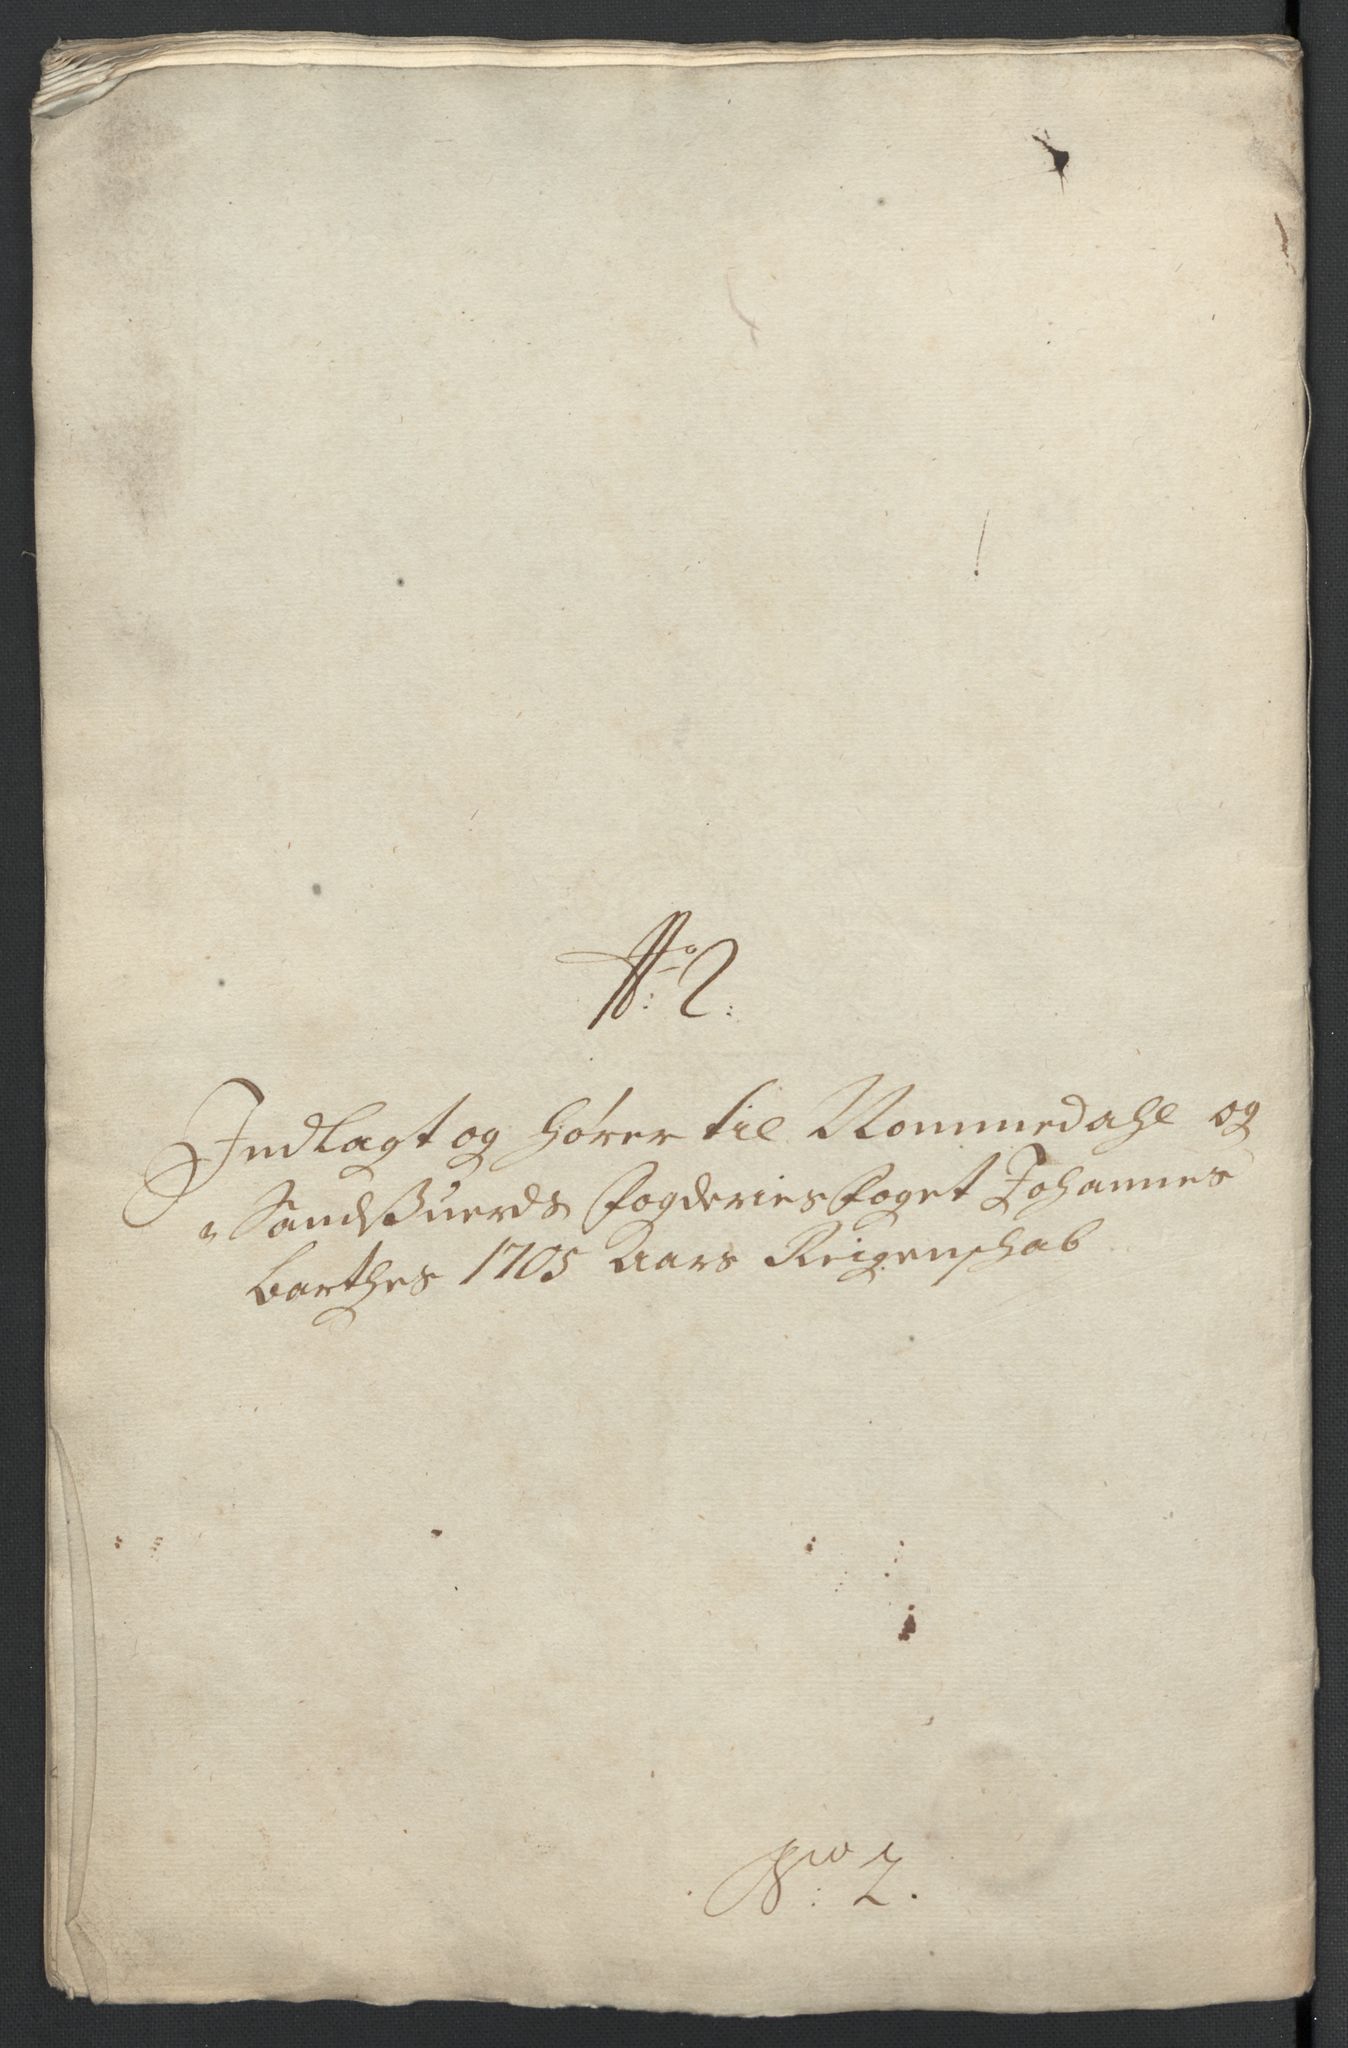 No: 2:
Indlagt og hører til Nommedahl og
Sandsuerds fogderies foget Johannes
barthes 1705 Aars Reigenschab
No: 2.